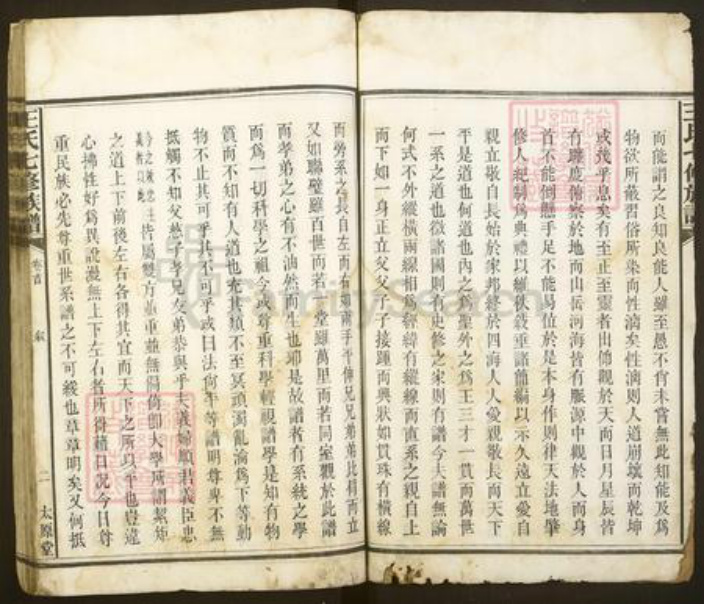 而能謂之良知良能人雖至愚不肖未嘗無此知能及爲
物欲所蔽習俗所染而性漓矣性漓則人道崩壞而乾坤
或幾乎息矣有至正至靈者出備觀於天而日月星辰皆
有躔度備察於地而山岳河海皆有脈源中觀於人而身
首不能倒懸手足不能易位於是本身作則律天法地肇
修人紀制爲典禮以維秩敍垂諸簡編以示久遠立愛自
親立敬自長始於家邦終於四海人人愛親敬長而天下
平是道也何道也內之爲聖外之爲王三才一貫而萬世
一系之道也徵諸國則有史修之家則有譜今夫譜無論
何式不外縱橫兩線相爲經緯有縱線而直系之親自上
而下如一身正立父父子子接踵而興狀如貫珠有橫線
而旁系之長自左而右如兩手平伸兄兄弟弟比肩而立
又如聯璧雖百世而若一堂雖萬里而若同室觀於此譜
而孝弟之心有不油然而生也耶是故譜者有系統之學
而爲一切科學之祖今或尊重科學輕視譜學是知有物
質而不知有人道也充其類不至冥頑濁亂淪爲下等動
物不止其可乎其不可乎或曰法向平等譜明尊卑不無
抵觸不知父慈子孝兄友弟恭與乎夫義婦順君義臣忠
皆屬雙方並重並無偏倚即大學所謂絜矩
之道上下前後左右各得其宜而天下之所以平也豈違
心拂性好爲異說漫無上下左右者所得藉口况今日尊
重民族必先尊重世系譜之不可緩也草草明矣又何抵
王氏七修族譜
卷首
敍
二
太原堂
王氏七修族譜
FamilySearch